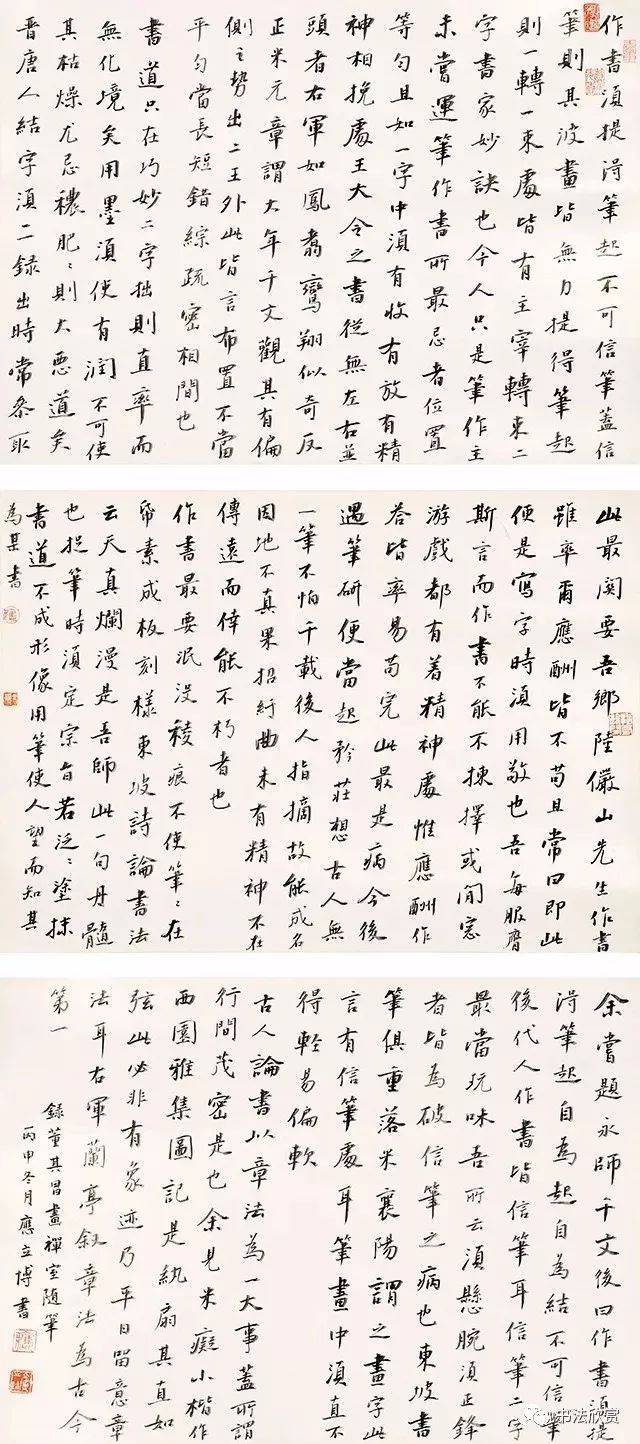 作書須提得筆起不可信筆蓋信
筆則其波畫皆無力提得筆起
則一轉一束處皆有主宰轉束二
字書家妙訣也今人只是筆作主
未嘗運筆作書所最忌者位置
等勻且如一字中須有收有放有精
神相挽處王大令之書從無左右並
頭者右軍如鳳翥鸞翔似奇反
正米元章謂大年千文觀其有偏
側之勢出二王外此皆言布置不當
平勻當長短錯綜疏密相間也
書道只在巧妙二字拙則直率而
無化境矣用墨須使有潤不可使
其枯燥尤忌穠肥〻則大惡道矣
晉唐人結字須一一錄出時常參取
此最關要吾鄉陸儼山先生作書
雖率爾應酬皆不苟且常曰即此
便是寫字時須用敬也吾每服膺
斯言而作書不能不揀擇或閒窓
游戲都有着精神處惟應酬作
答皆率易苟完此最是病今後
遇筆研便當起矜莊想古人無
一筆不怕千載後人指摘故能成名
因地不真果招紆曲未有精神不在
傳遠而倖能不朽者也
作書最要泯沒稜痕不使筆〻在
帋素成板刻樣東坡詩論書法
云天真爛漫是吾師此一句丹髓
也捉筆時須定宗旨若泛〻塗抹
書道不成形像用筆使人望而知其
為某書
余嘗題永師千文後曰作書須提
得筆起自為起自為結不可信筆
後代人作書皆信筆耳信筆二字
最當玩味吾所云須懸腕須正鋒
者皆為破信筆之病也東坡書
筆俱重落米襄陽謂之畫字此
言有信筆處耳筆畫中須直不
得輕易偏軟
古人論書以章法為一大事蓋所謂
行間茂密是也余見米癡小楷作
西園雅集圖記是紈扇其直如
弦此必非有象迹乃平日留意章
法耳右軍蘭亭叙章法為古今
第一
錄董其昌畫禪室隨筆
丙申冬月應立博書
书法欣赏